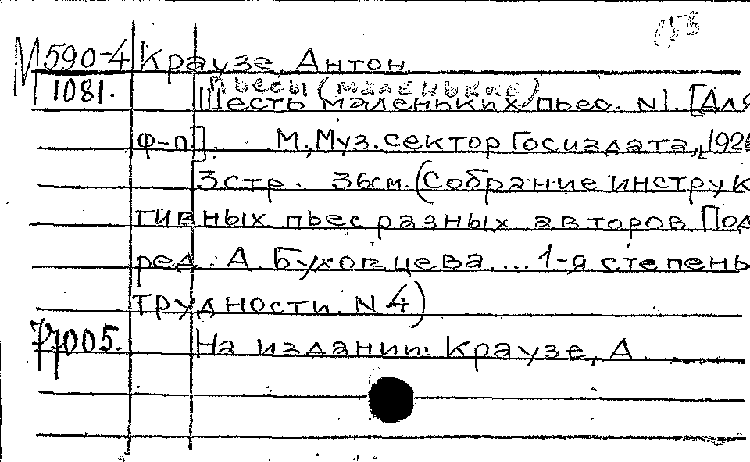 М590-4 Краузе, Антон
1081. Пьесы (маленькие)
Шесть маленьких пьес. N1. [Для
ф-п]. М., Муз. сектор Госиздата, [192
3 стр. 36 см. (Собрание инструк
тивных пьес разных авторов Под
ред. А. Буховцева... 1-я степень
трудности. N 4)
77005. На издании: Краузе, А.